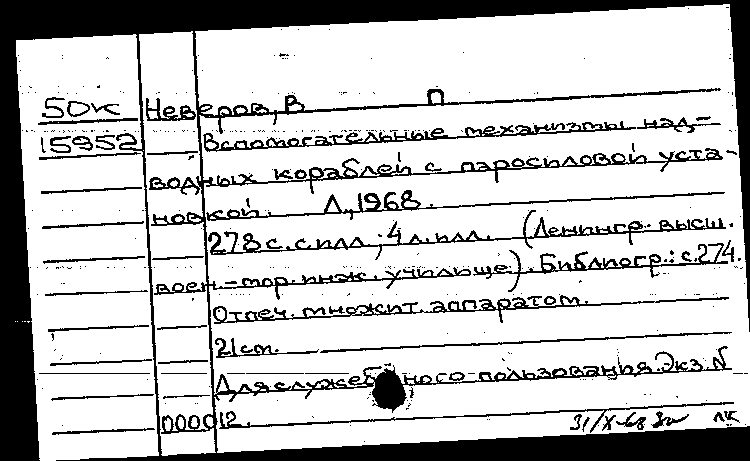 50к Неверов, В П
15952 Вспомогательные механизмы над-
водных кораблей с паросиловой уста-
новкой. Л., 1968.
278 с. с илл.; 4 л. илл. (Ленингр. высш.
воен.-мор. инж. училище). Библиогр.: с. 274.
Отпеч. множит. аппаратом.
21 см.
Для служебного пользования. Экз. N
000012.
31/X-68 лк